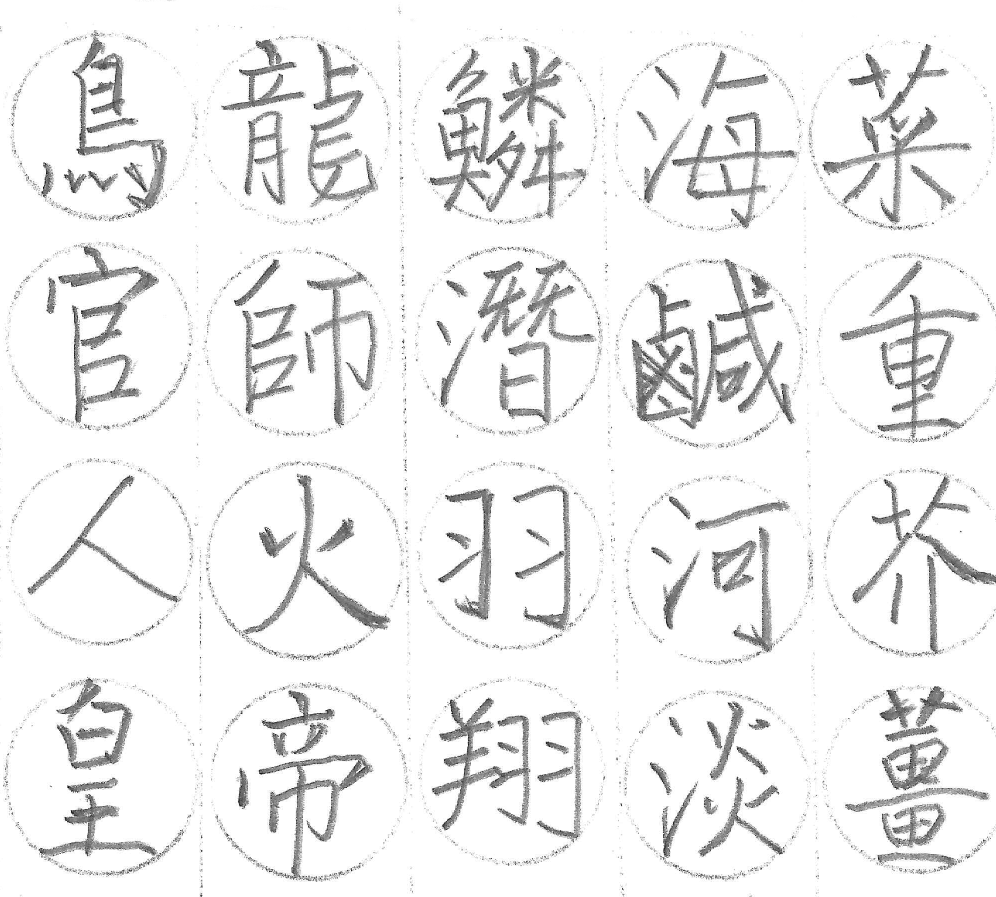 菜重芥薑
海鹹河淡
鱗潛羽翔
龍師火帝
鳥官人皇